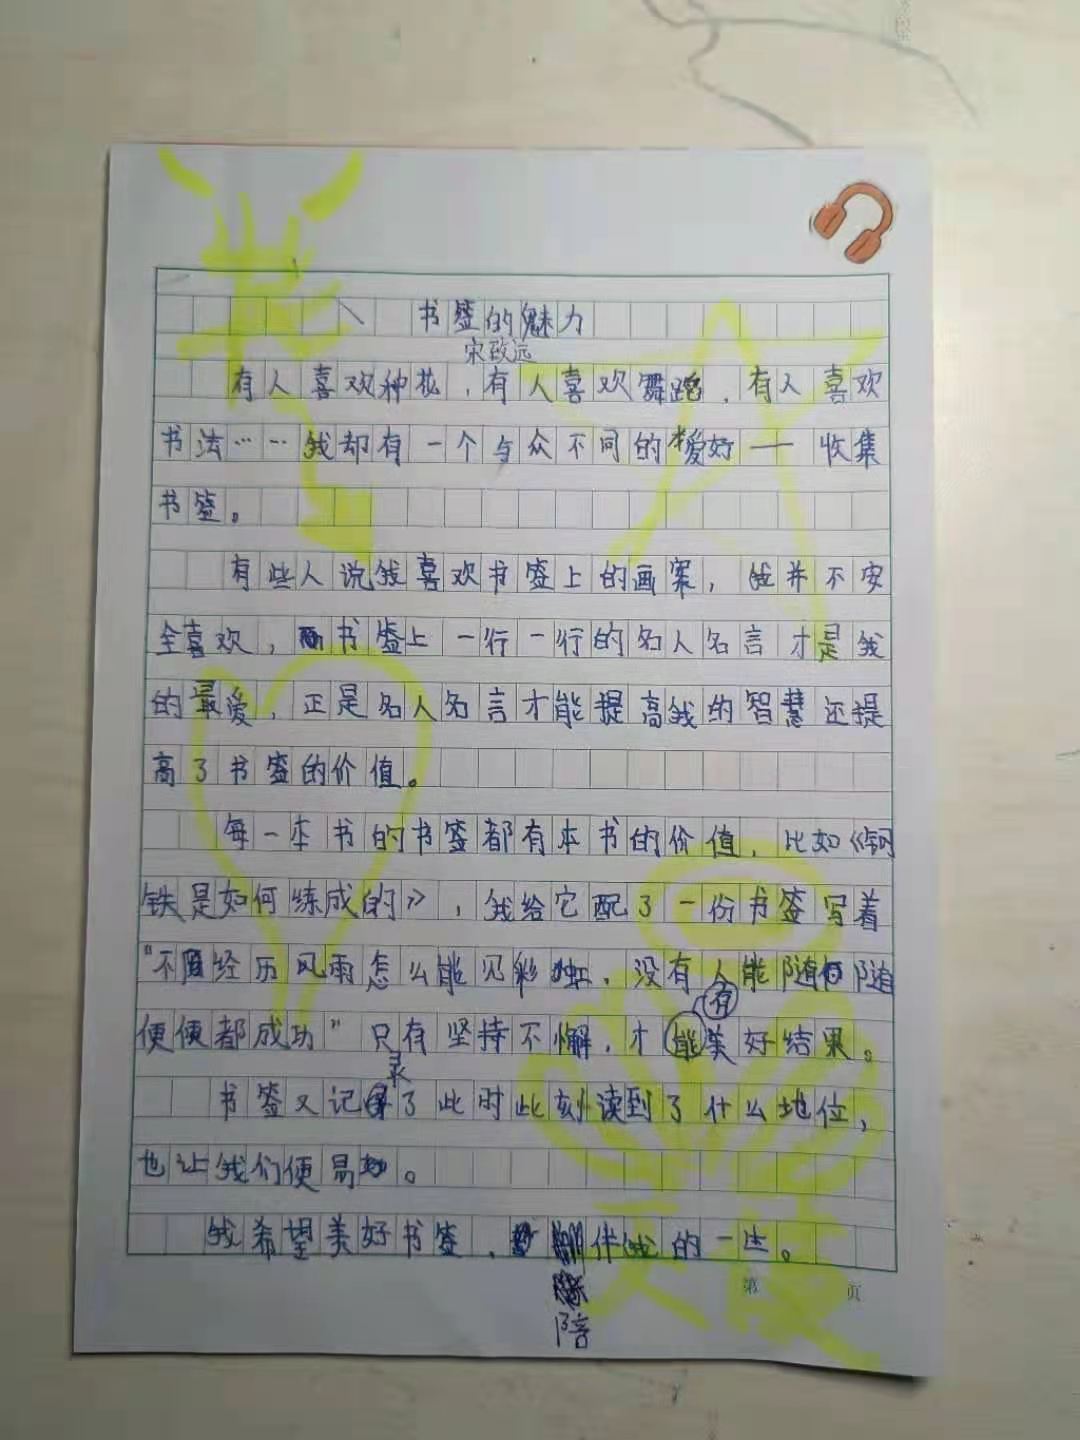 书签的魅力
宋致远
有人喜欢种花，有人喜欢舞蹈，有人喜欢
书法……我却有一个与众不同的爱好——收集
书签。
有些人说我喜欢书签上的画案，我并不安
全喜欢，而书签上一行一行的名人名言才是我
的最爱，正是名人名言才能提高我的智慧还提
高了书签的价值。
每一本书的书签都有本书的价值，比如《钢
铁是如何练成的》，我给它配了一份书签写着
“不经历风雨怎么能见彩虹，没有人能随随
便便都成功”只有坚持不懈，才能有美好结果。
书签又记录了此时此刻读到了什么地位，
也让我们便易。
我希望美好书签，陪伴我的一生。
第 页